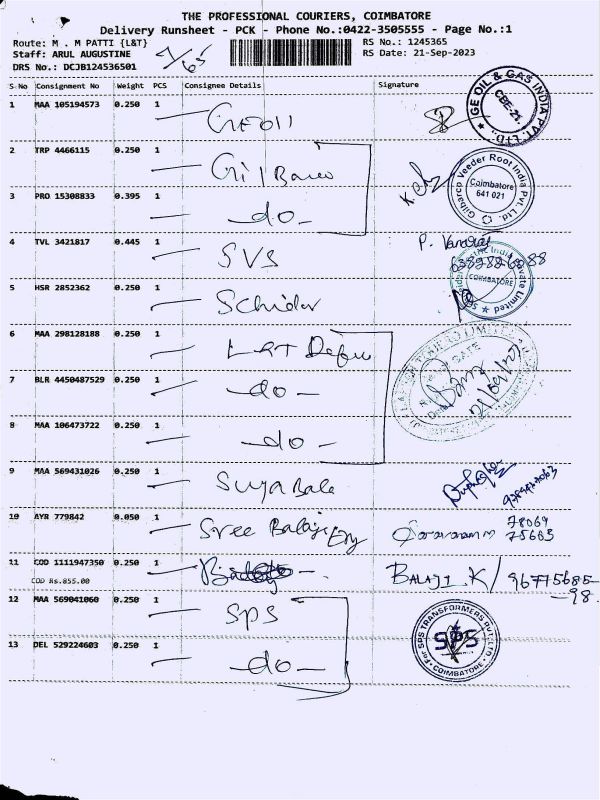 THE PROFESSIONAL COURIERS, COIMBATORE
Delivery Runsheet - PCK - Phone No.:0422-3505555 - Page No.:1
Route: M . M PATTI {L&T}
RS No.: 1245365
Staff: ARUL AUGUSTINE
RS Date: 21-Sep-2023
DRS No.: DCJB124536501
S No Consignment No Weight PCS Consignee Details Signature
1 MAA 105194573 0.250 1
GE OIL & GAS INDIA PVT. LTD.
CBE-21
2 TRP 4466115 0.250 1
Gilbarco Veeder Root India Pvt. Ltd.
Coimbatore
641 021
3 PRO 15308833 0.395 1 -do-
4 TVL 3421817 0.445 1 SVS
COIMBATORE
5 HSR 2852362 0.250 1
6 MAA 298128188 0.250 1 L&T
7 BLR 4450487529 0.250 1 -do-
8 MAA 106473722 0.250 1 -do-
9 MAA 569431026 0.250 1
10 AYR 779842 0.050 1 Sree Balaji Eng
78069
75665
11 COD 1111947350 0.250 1 BALAJI.K/
COD Rs.855.00
12 MAA 569041060 0.250 1 SPS
For SPS TRANSFORMERS Pvt. Ltd.
SPS
COIMBATORE
13 DEL 529224603 0.250 1 -do-